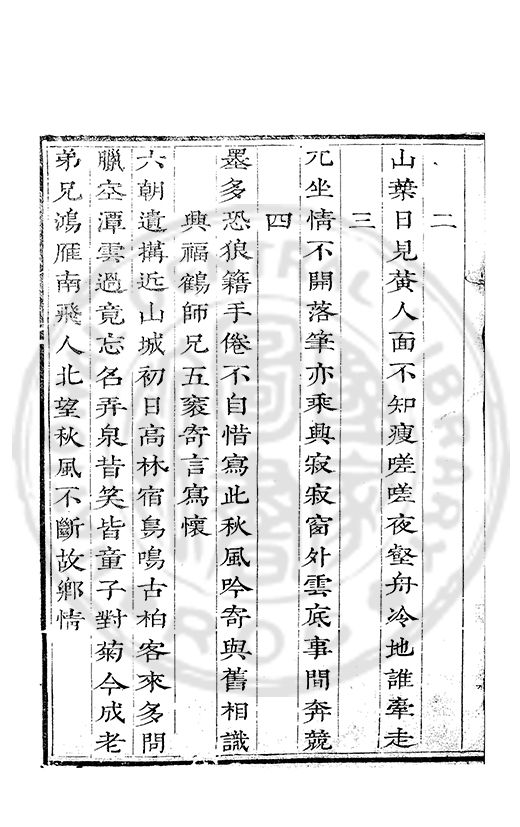 二
山葉日見黃人面不知瘦嗟嗟夜壑舟冷地誰牽走
三
兀坐情不開落筆亦乘興寂寂窗外雲底事間奔競
四
墨多恐狼籍手倦不自惜寫此秋風吟寄與舊相識
興福鶴師兄五袠寄言寫懷
六朝遺搆近山城初日高林宿鳥鳴古柏客來多問
臘空潭雲過竟忘名弄泉昔笑皆童子對菊今成老
弟兄鴻雁南飛人北望秋風不斷故鄉情